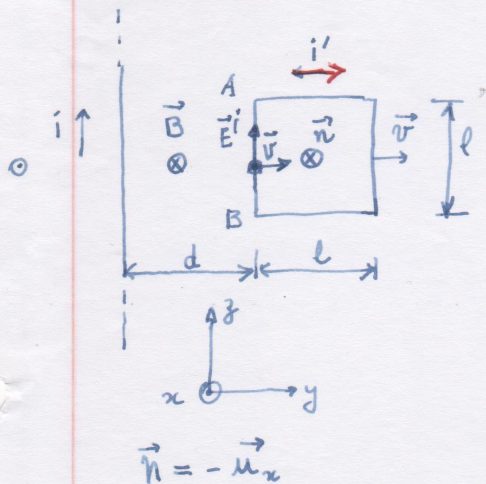 i'
A
i
B⃗
E⃗ⁱ
v⃗
n⃗
v⃗
l
B
d
l
z
x
y
n⃗ = - u⃗ₓ